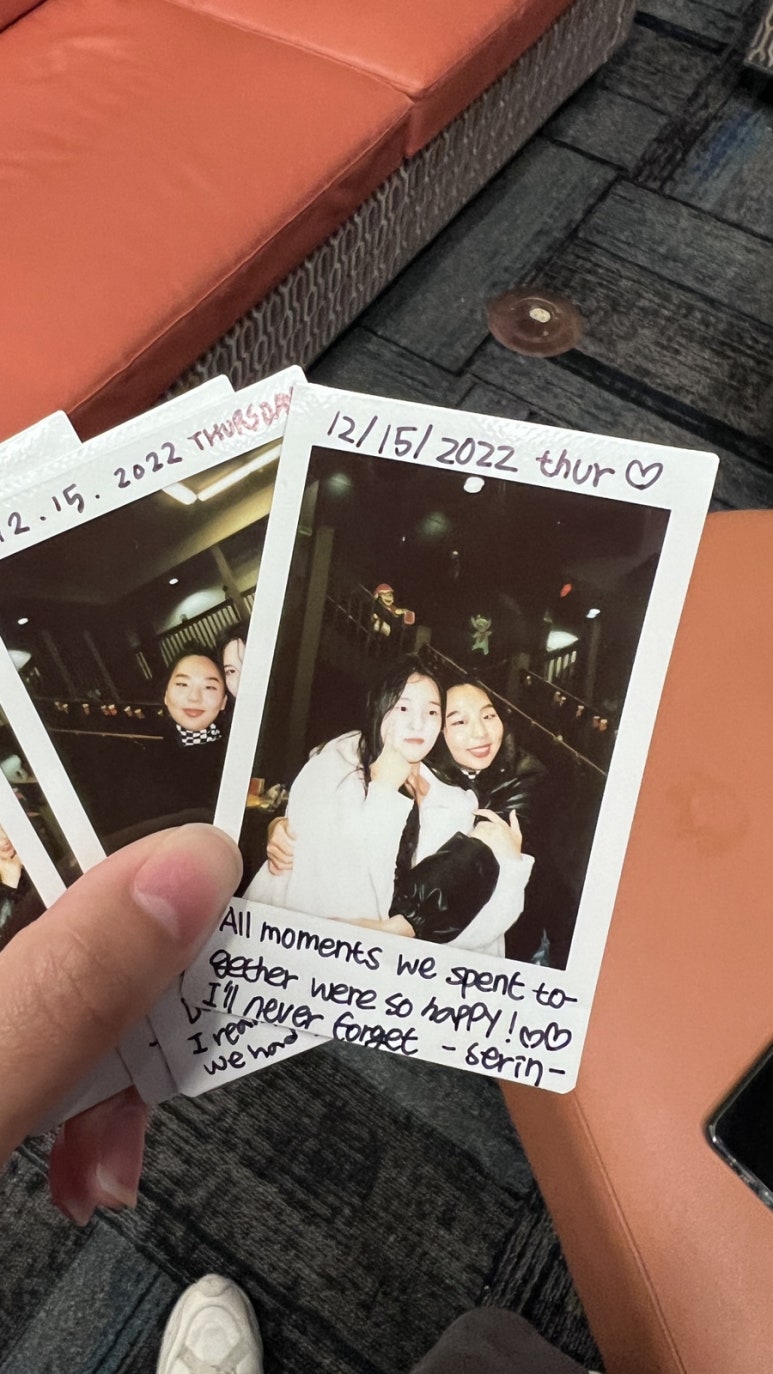 12.15.2022 THURSDAY
12/15/2022 thur ♡
All moments we spent to-
gether were so happy!♡♡
I'll never forget -serin-
I rea
we had